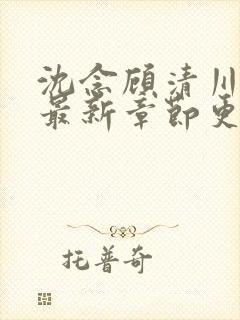 沈念顾清川
最新章节更
托普奇